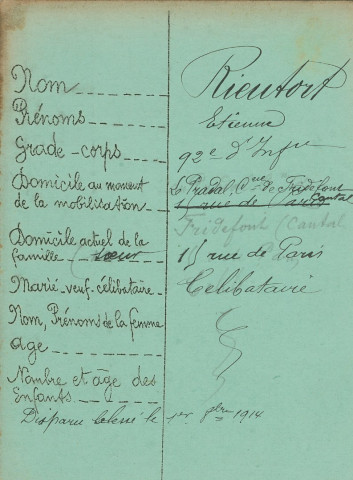 Nom Rieutort
Prénoms Etienne
Grade-corps 92e d'Infie
Domicile au moment Le Pradal Cne de Fridefont
de la mobilisation Cantal
Fridefont (Cantal
Domicile actuel de la
famille (sœur 15 rue de Paris
Marié-veuf-célibataire Celibataire
Nom, Prénoms de la femme
age
Nombre et âge des
Enfants
Disparu blessé le 1er 1914